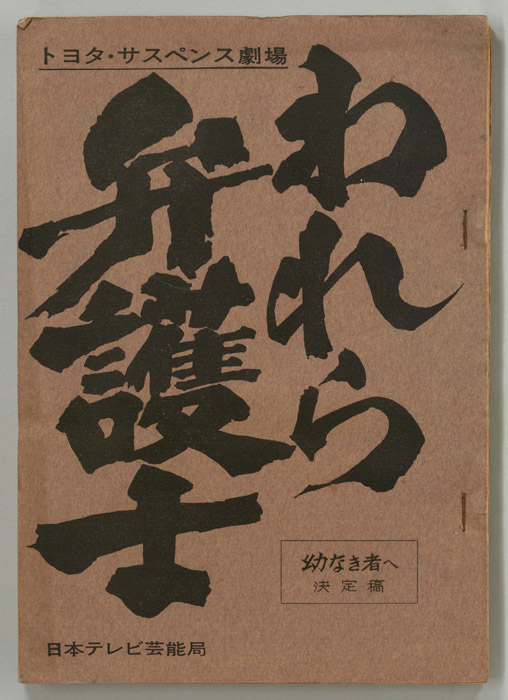 トヨタ・サスペンス劇場
われら
弁護士
幼なき者へ
決定稿
日本テレビ芸能局